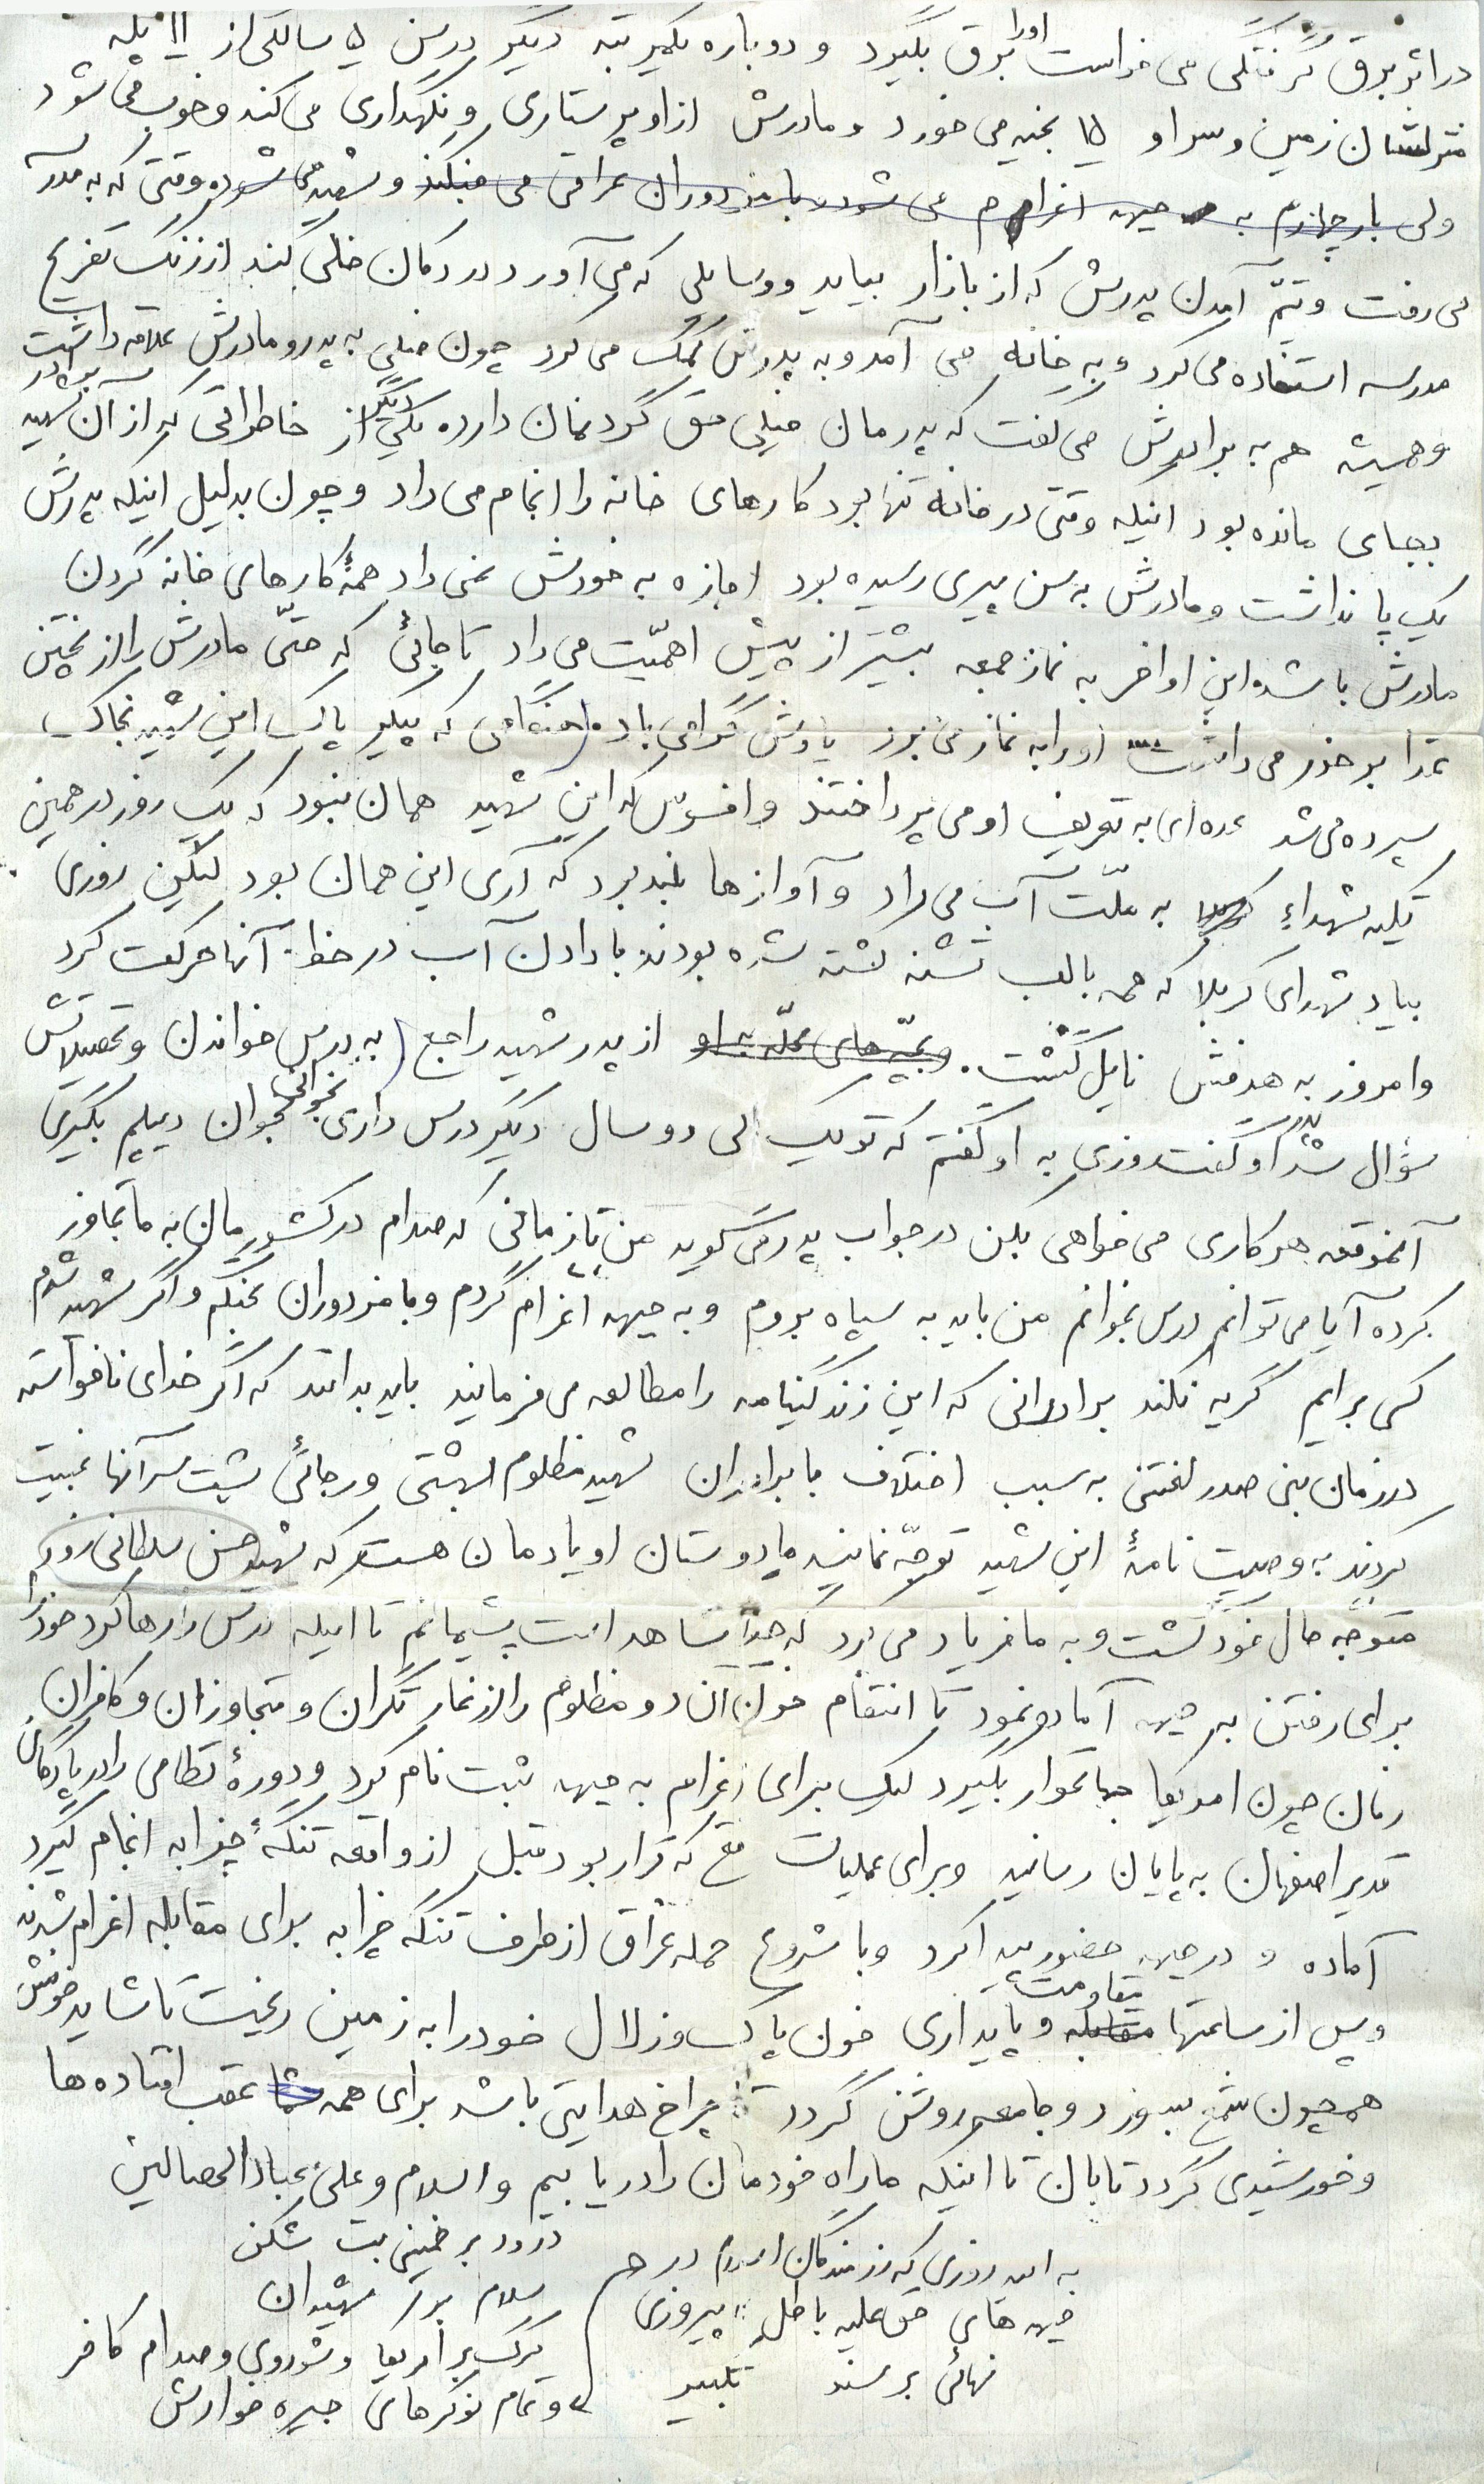 در اثر برق گرفتگی می خواست او را برق بگیرد و دوباره یکمرتبه دیگر درسن ۵ سالگی از ۱۱ پله
منزلشان زمین و سر او ۱۵ بخیه می خورد و مادرش از او پرستاری و نگهداری می کند و خوب می شود
ولی بار چهارم به جبهه اعزام می شود با مزدوران عراقی می جنگد و شهید می شود وقتی که به مدرسه
می رفت وقت آمدن پدرش که از بازار بیاید و وسایلی که می آورد در دکان خالی کند از زنگ تفریح
مدرسه استفاده می کرد و به خانه می آمد و به پدرش کمک می کرد چون خیلی به پدر و مادرش علاقه داشت
و همیشه هم به برادرش می گفت که پدرمان خیلی حق گردنمان دارد یکی دیگر از خاطراتی که از آن شهید
بجای مانده بود اینکه وقتی در خانه تنها بود کارهای خانه را انجام می داد و چون بدلیل اینکه پدرش
یک پا نداشت و مادرش به سن پیری رسیده بود اجازه به خودش نمی داد همهٔ کارهای خانه گردن
مادرش باشد این اواخر به نماز جمعه بیشتر از پیش اهمّیت می داد تا جائی که حتّی مادرش را از پختن
غذا بر حذر می داشت او را به نماز می برد یادش گرامی باد (هنگامی که پیکر پاک این شهید بخاک
سپرده می شد عده ای به تعریف او می پرداختند و افسوس که این شهید همان نبود که یک روز در همین
تکیه شهداء به ملّت آب می داد و آوازها بلند بود که آری این همان بود لیکن روزی
بیاد شهدای کربلا که همه با لب تشنه کشته شده بودند با دادن آب در خط آنها حرکت کرد
و امروز به هدفش نایل گشت. و بچّه های محلّه به او از پدر شهید راجع (به درس خواندن و تحصیلاتش
سؤال شد پدرش گفت روزی به او گفتم که تو یک الی دو سال دیگر درس داری بخوان دیپلم بگیری
آنموقعه هر کاری می خواهی بکن در جواب پدر می گوید من تا زمانی که صدام در کشورمان به ما تجاوز
کرده آیا می توانم درس بخوانم من باید به سپاه بروم و به جبهه اعزام گردم و با مزدوران بجنگم و اگر شهید شدم
کسی برایم گریه نکند برادرانی که این زندگینامه را مطالعه می فرمایند باید بدانند که اگر خدای ناخواسته
در زمان بنی صدر لعنتی به سبب اختلاف با برادران شهید مظلوم بهشتی و رجائی پشت سر آنها غیبت
کردند به وصیت نامهٔ این شهید توجّه نمایند ما دوستان او یادمان هست که شهید حسن سلطانی زود
متوجّه حال خود گشت و به ما فریاد می کرد که خدا شاهد است پشیمانم تا اینکه درس را رها کرد خود را
برای رفتن به جبهه آماده نمود تا انتقام خون آن دو مظلوم را از غارتگران و متجاوزان و کافران
زمان چون امریکا جهانخوار بگیرد لیک برای اعزام به جبهه ثبت نام کرد و دورهٔ نظامی را در پادگان
غدیر اصفهان به پایان رسانید و برای عملیات فتح که قرار بود قبل از واقعه تنگهٔ چزابه انجام گیرد
آماده و در جبهه حضور پیدا کرد و با شروع حمله عراق از طرف تنگه چزابه برای مقابله اعزام شدند
و پس از ساعتها مقابله مقاومت و پایداری خون پاک و زلال خود را به زمین ریخت تا شاید خونش
همچون شمع بسوزد و جامعه روشن گردد تا چراغ هدایتی باشد برای همه ما عقب افتاده ها
و خورشیدی گردد تابان تا اینکه ما راه خودمان را دریابیم والسلام و علیٰ عباد الله الصالحین
به امید روزی که رزمندگان اسلام در هم
جبهه های حق علیه باطل پیروزی
نهائی برسند تکبیر
درود بر خمینی بت شکن
سلام بر شهیدان
مرگ بر امریکا و شوروی و صدام کافر
و تمام نوکرهای جیره خوارش